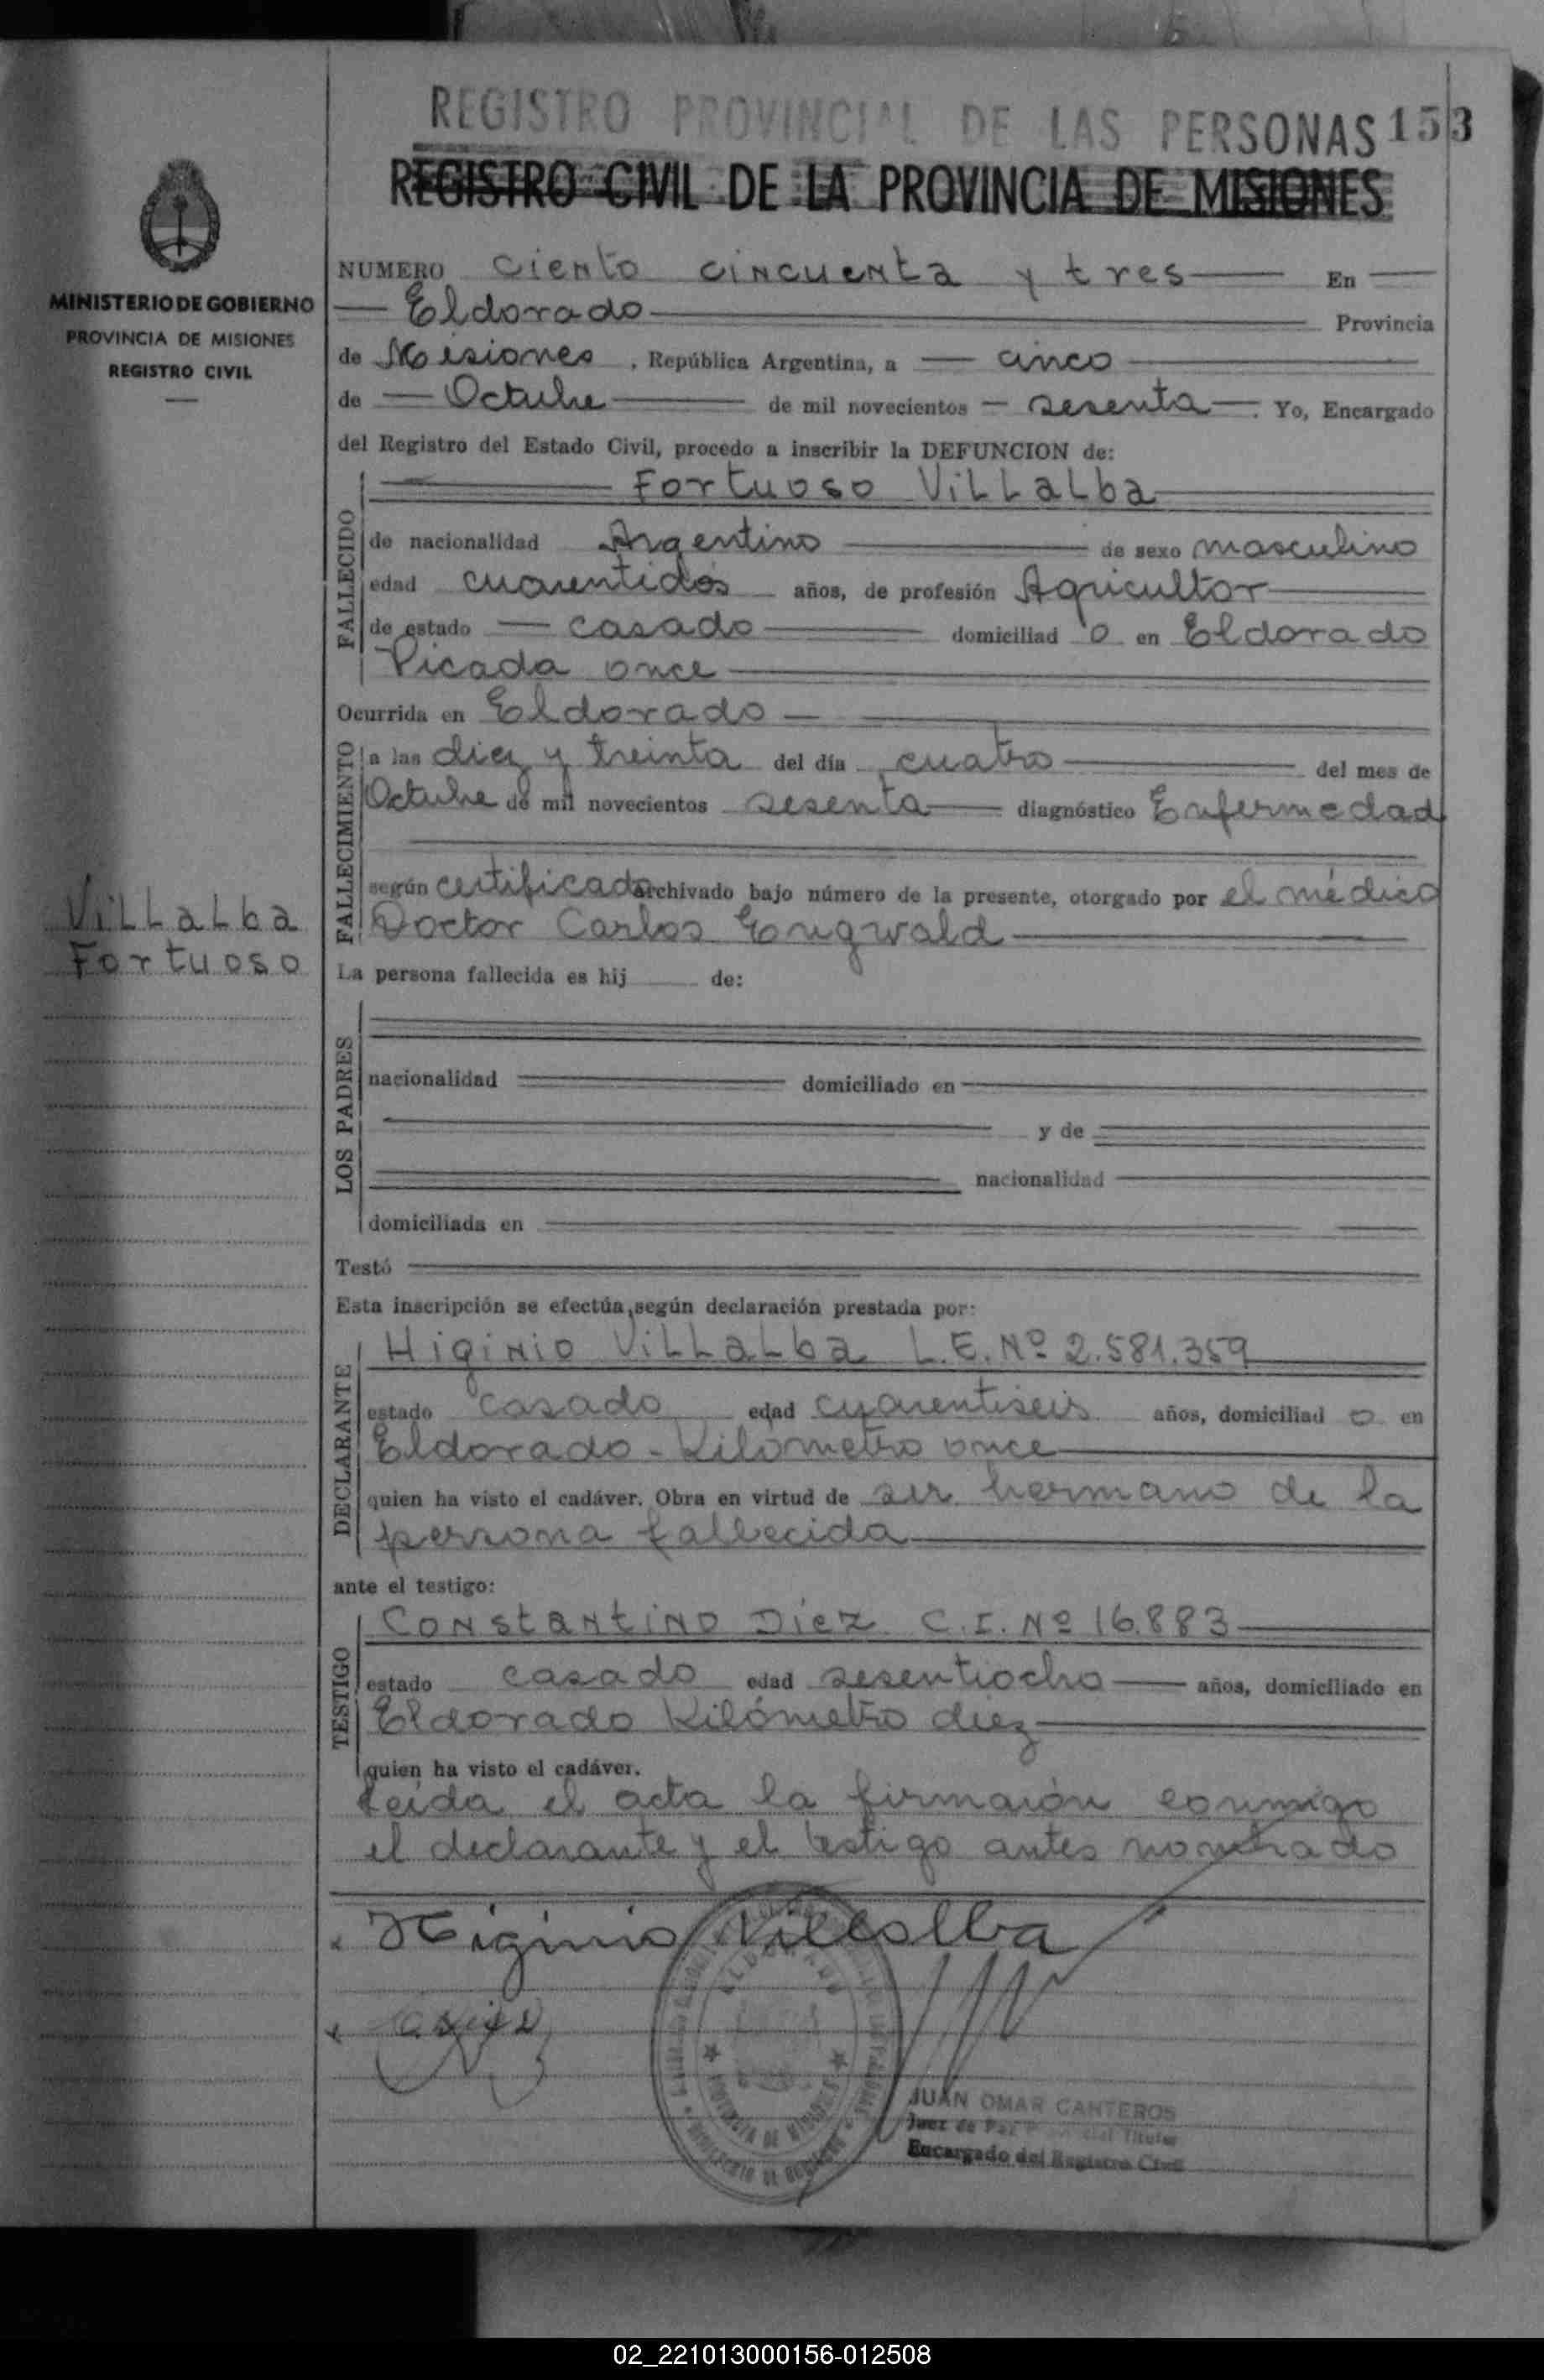 REGISTRO PROVINCIAL DE LAS PERSONAS 153
REGISTRO CIVIL DE LA PROVINCIA DE MISIONES
MINISTERIO DE GOBIERNO
PROVINCIA DE MISIONES
REGISTRO CIVIL
NUMERO ciento cincuenta y tres En
Eldorado Provincia
de Misiones, República Argentina, a cinco
de Octubre de mil novecientos sesenta. Yo, Encargado
del Registro del Estado Civil, procedo a inscribir la DEFUNCION de:
Fortuoso Villalba
FALLECIDO
de nacionalidad Argentino de sexo masculino
edad cuarentidós años, de profesión Agricultor
de estado casado domiciliad o en Eldorado
Picada once
Ocurrida en Eldorado
FALLECIMIENTO
a las diez y treinta del día cuatro del mes de
Octubre de mil novecientos sesenta diagnóstico Enfermedad
según certificado archivado bajo número de la presente, otorgado por el médico
Doctor Carlos Engwald
Villalba
Fortuoso
La persona fallecida es hij de:
LOS PADRES
nacionalidad domiciliado en
y de
nacionalidad
domiciliada en
Testó
Esta inscripción se efectúa, según declaración prestada por:
DECLARANTE
Higinio Villalba L.E. Nº 2.581.359
estado casado edad cuarentiseis años, domiciliad o en
Eldorado - Kilómetro once
quien ha visto el cadáver. Obra en virtud de ser hermano de la
persona fallecida
ante el testigo:
TESTIGO
Constantino Diez C.I. Nº 16.883
estado casado edad sesentiocho años, domiciliado en
Eldorado Kilómetro diez
quien ha visto el cadáver.
Leída el acta la firmarón conmigo
el declarante y el testigo antes nombrado
Higinio Villalba
ELDORADO
PROVINCIA DE MISIONES
MINISTERIO DE GOBIERNO
JUAN OMAR CANTEROS
Juez de Paz Titular
Encargado del Registro Civil
02_221013000156-012508